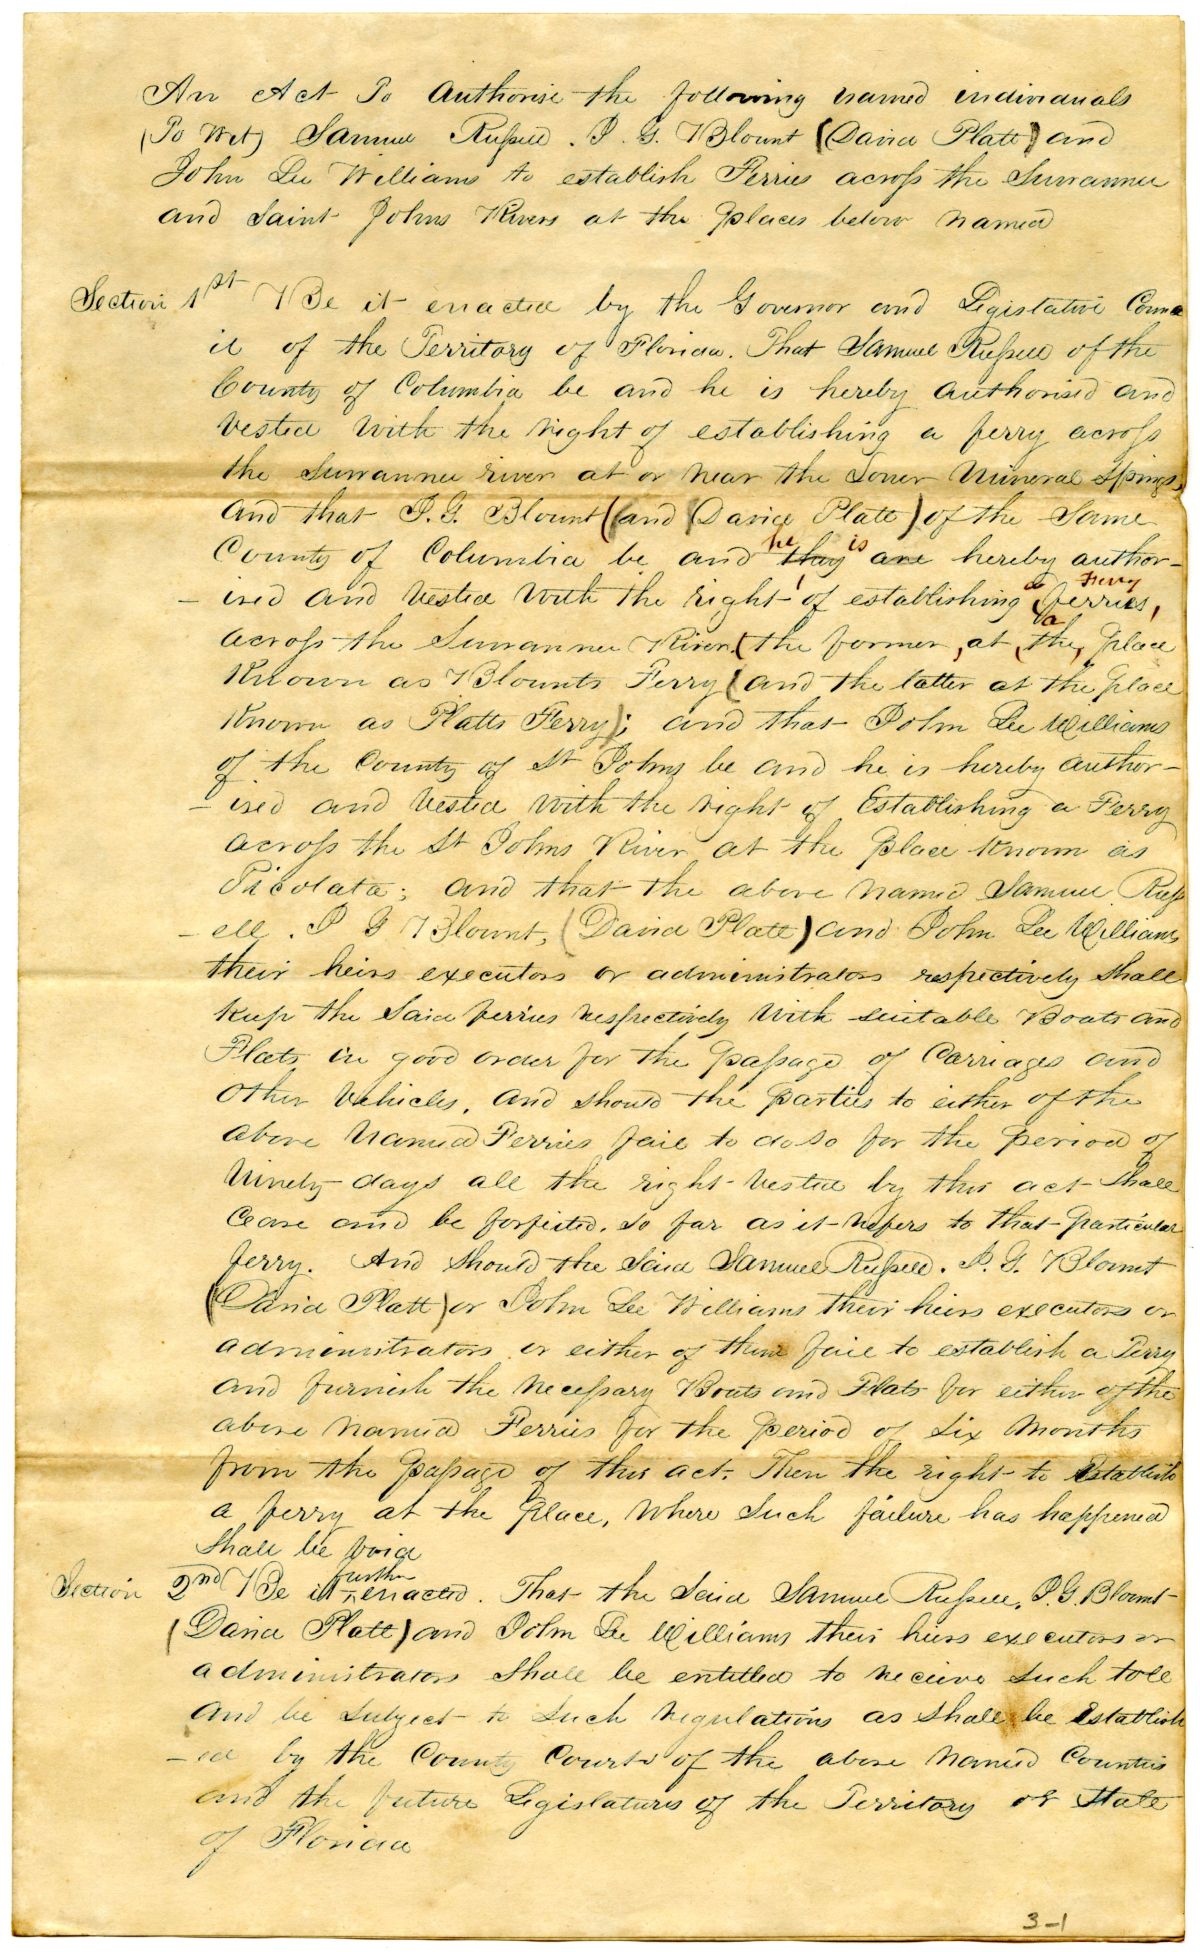 An Act To Authorise the following named individuals
(To Wit) Samuel Russell. J. G. Blount (David Platt) and
John Lee Williams to establish Ferries across the Suwannee
and Saint Johns Rivers at the places below named
Section 1st Be it enacted by the Governor and Legislative Counc
il of the Territory of Florida. That Samuel Russell of the
County of Columbia be and he is hereby authorised and
Vested With the right of establishing a ferry across
the Suwannee river at or near the Lower Mineral Springs,
and that J. G. Blount ((and (David Platt) of the Same
County of Columbia be and he they is are hereby author-
-ised and Vested With the right of establishing a Ferry ferries,
across the Suwannee River, (the former, at, a (the, place
Known as Blounts Ferry (and the latter at the place
Known as Platts Ferry); and that John Lee Williams
of the County of St Johns be and he is hereby author-
-ised and Vested With the right of Establishing a Ferry
across the St Johns River at the place Known as
Picolata; and that the above named Samuel Russ
-ell. J G Blount, (David Platt) and John Lee Williams
their heirs executors or administrators respectively Shall
Keep the Said ferries respectively With suitable Boats and
Flats in good order for the passage of Carriages and
Other Vehicles, and should the parties to either of the
above Named Ferries fail to do so for the period of
Ninety days all the right Vested by this act Shall
Cease and be forfeited. So far as it refers to that particular
ferry. And Should the Said Samuel Russell. J. G. Blount
(David Platt) or John Lee Williams their heirs executors or
administrators or either of them fail to establish a Ferry
and furnish the necessary Boats and Flats for either of the
above named Ferries for the period of Six Months
from the passage of this act. Then the right to Establish
a ferry at the place, Where Such failure has happened
Shall be void
Section 2nd Be it further enacted. That the Said Samuel Russell, J. G. Blount
(David Platt) and John Lee Williams their heirs executors or
administrators Shall be entitled to receive Such toll
and be subject to Such regulations as shall be Establish
-ed by the County Courts of the above named Counties
and the future Legislatures of the Territory or State
of Florida
3-1